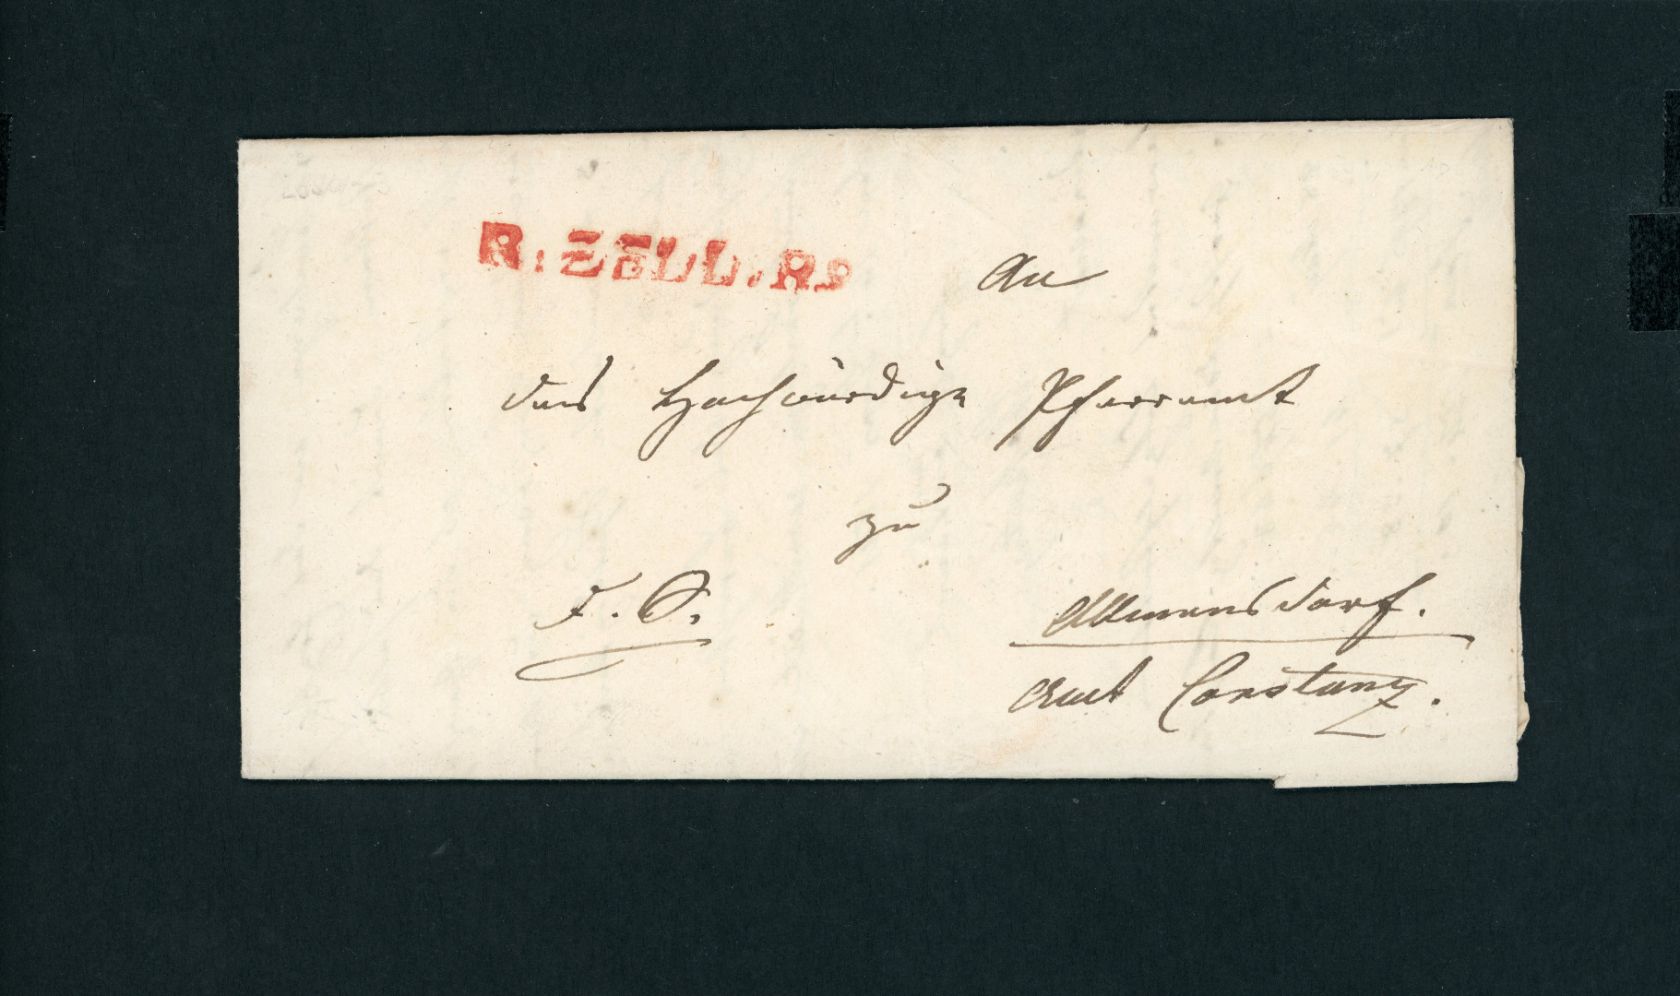 R. ZELL. R2
An
das Hochwürdige Pfarramt
zu
Allmansdorf.
Amt Constanz.